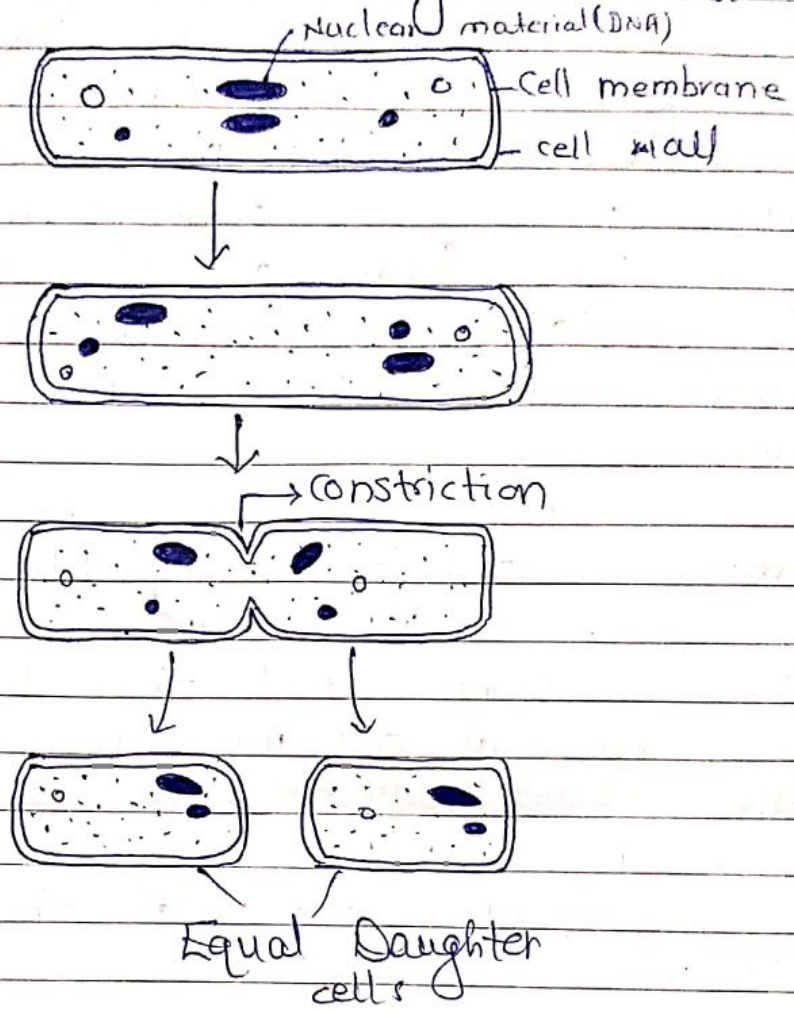 Nuclear material (DNA)
Cell membrane
cell wall
Constriction
Equal Daughter
cells